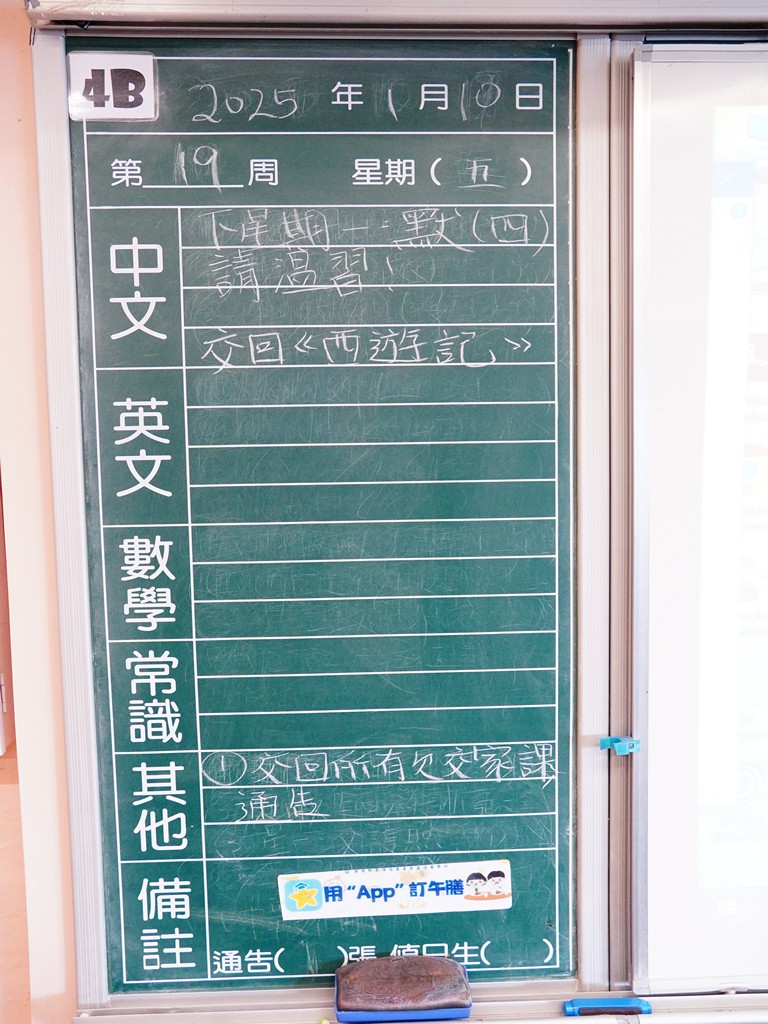 4B
2025 年 1 月 10 日
第 19 周 星期 ( 五 )
中文
下星期一：默(四)
請溫習！
交回《西遊記》
英文
數學
常識
其他
① 交回所有欠交家課,
通告
備註
用“App”訂午膳
通告( )張 值日生( )